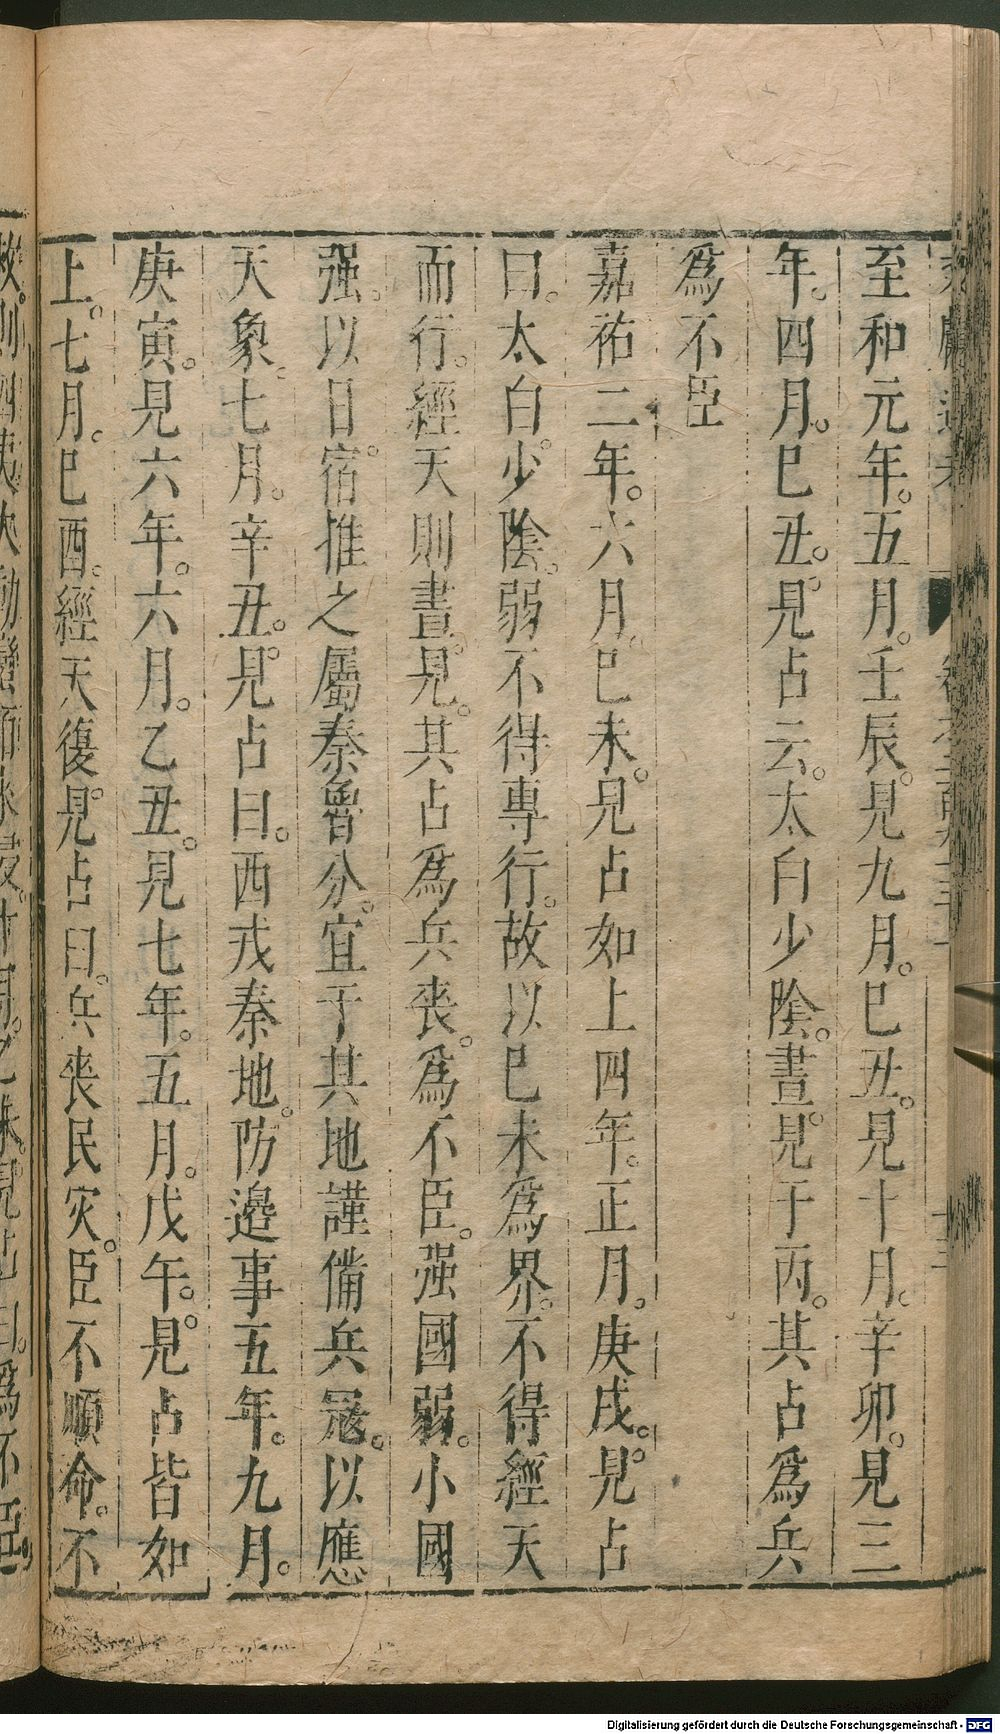 至和元年。五月。壬辰。見九月。巳丑。見十月。辛卯。見三
年。四月。巳丑。見。占云。太白少陰。晝見于丙。其占爲兵
爲不臣
嘉祐二年。六月。巳未。見占如上四年。正月。庚戌。見。占
曰。太白。少陰。弱不得專行。故以巳未爲界。不得經天
而行。經天則晝見。其占爲兵喪。爲不臣。强國弱。小國
强。以日宿。推之屬秦魯分。宜于其地謹備兵冦。以應
天象。七月。辛丑。見占曰。西戎秦地。防邉事五年。九月。
庚寅。見六年。六月。乙丑。見七年。五月。戊午。見。占皆如
上。七月。巳酉。經天復見。占曰。兵喪民灾。臣不順命。不
爲不臣
Digitalisierung gefördert durch die Deutsche Forschungsgemeinschaft - DFG